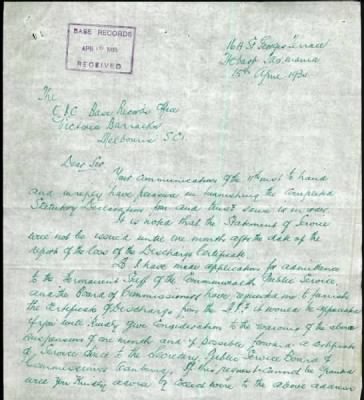 BASE RECORDS
APR
RECEIVED
16A St Georges Terrace
Hobart Tasmania
15th April 1930
The
O/C Base Records Office
Victoria Barracks
Melbourne S.C.1
Dear Sir
Your communication of the 11th inst to hand
and in reply have pleasure in furnishing the completed
Statutory Declaration form and trust same is in order.
It is noted that the Statement of Service
will not be issued until one month after the date of the
report of the loss of the Discharge Certificate.
As I have made application for admittance
to the Permanent Staff of the Commonwealth Public Service
and the Board of Commissioners have requested me to furnish
the Certificate of Discharge from the A.I.F. it would be appreciated
if you will kindly give consideration to the waiving of the above
suspension of one month and if possible forward a certificate
of Service direct to the Secretary, Public Service Board of
Commissioners Canberra. If this request cannot be granted
will you kindly advise of to the above address